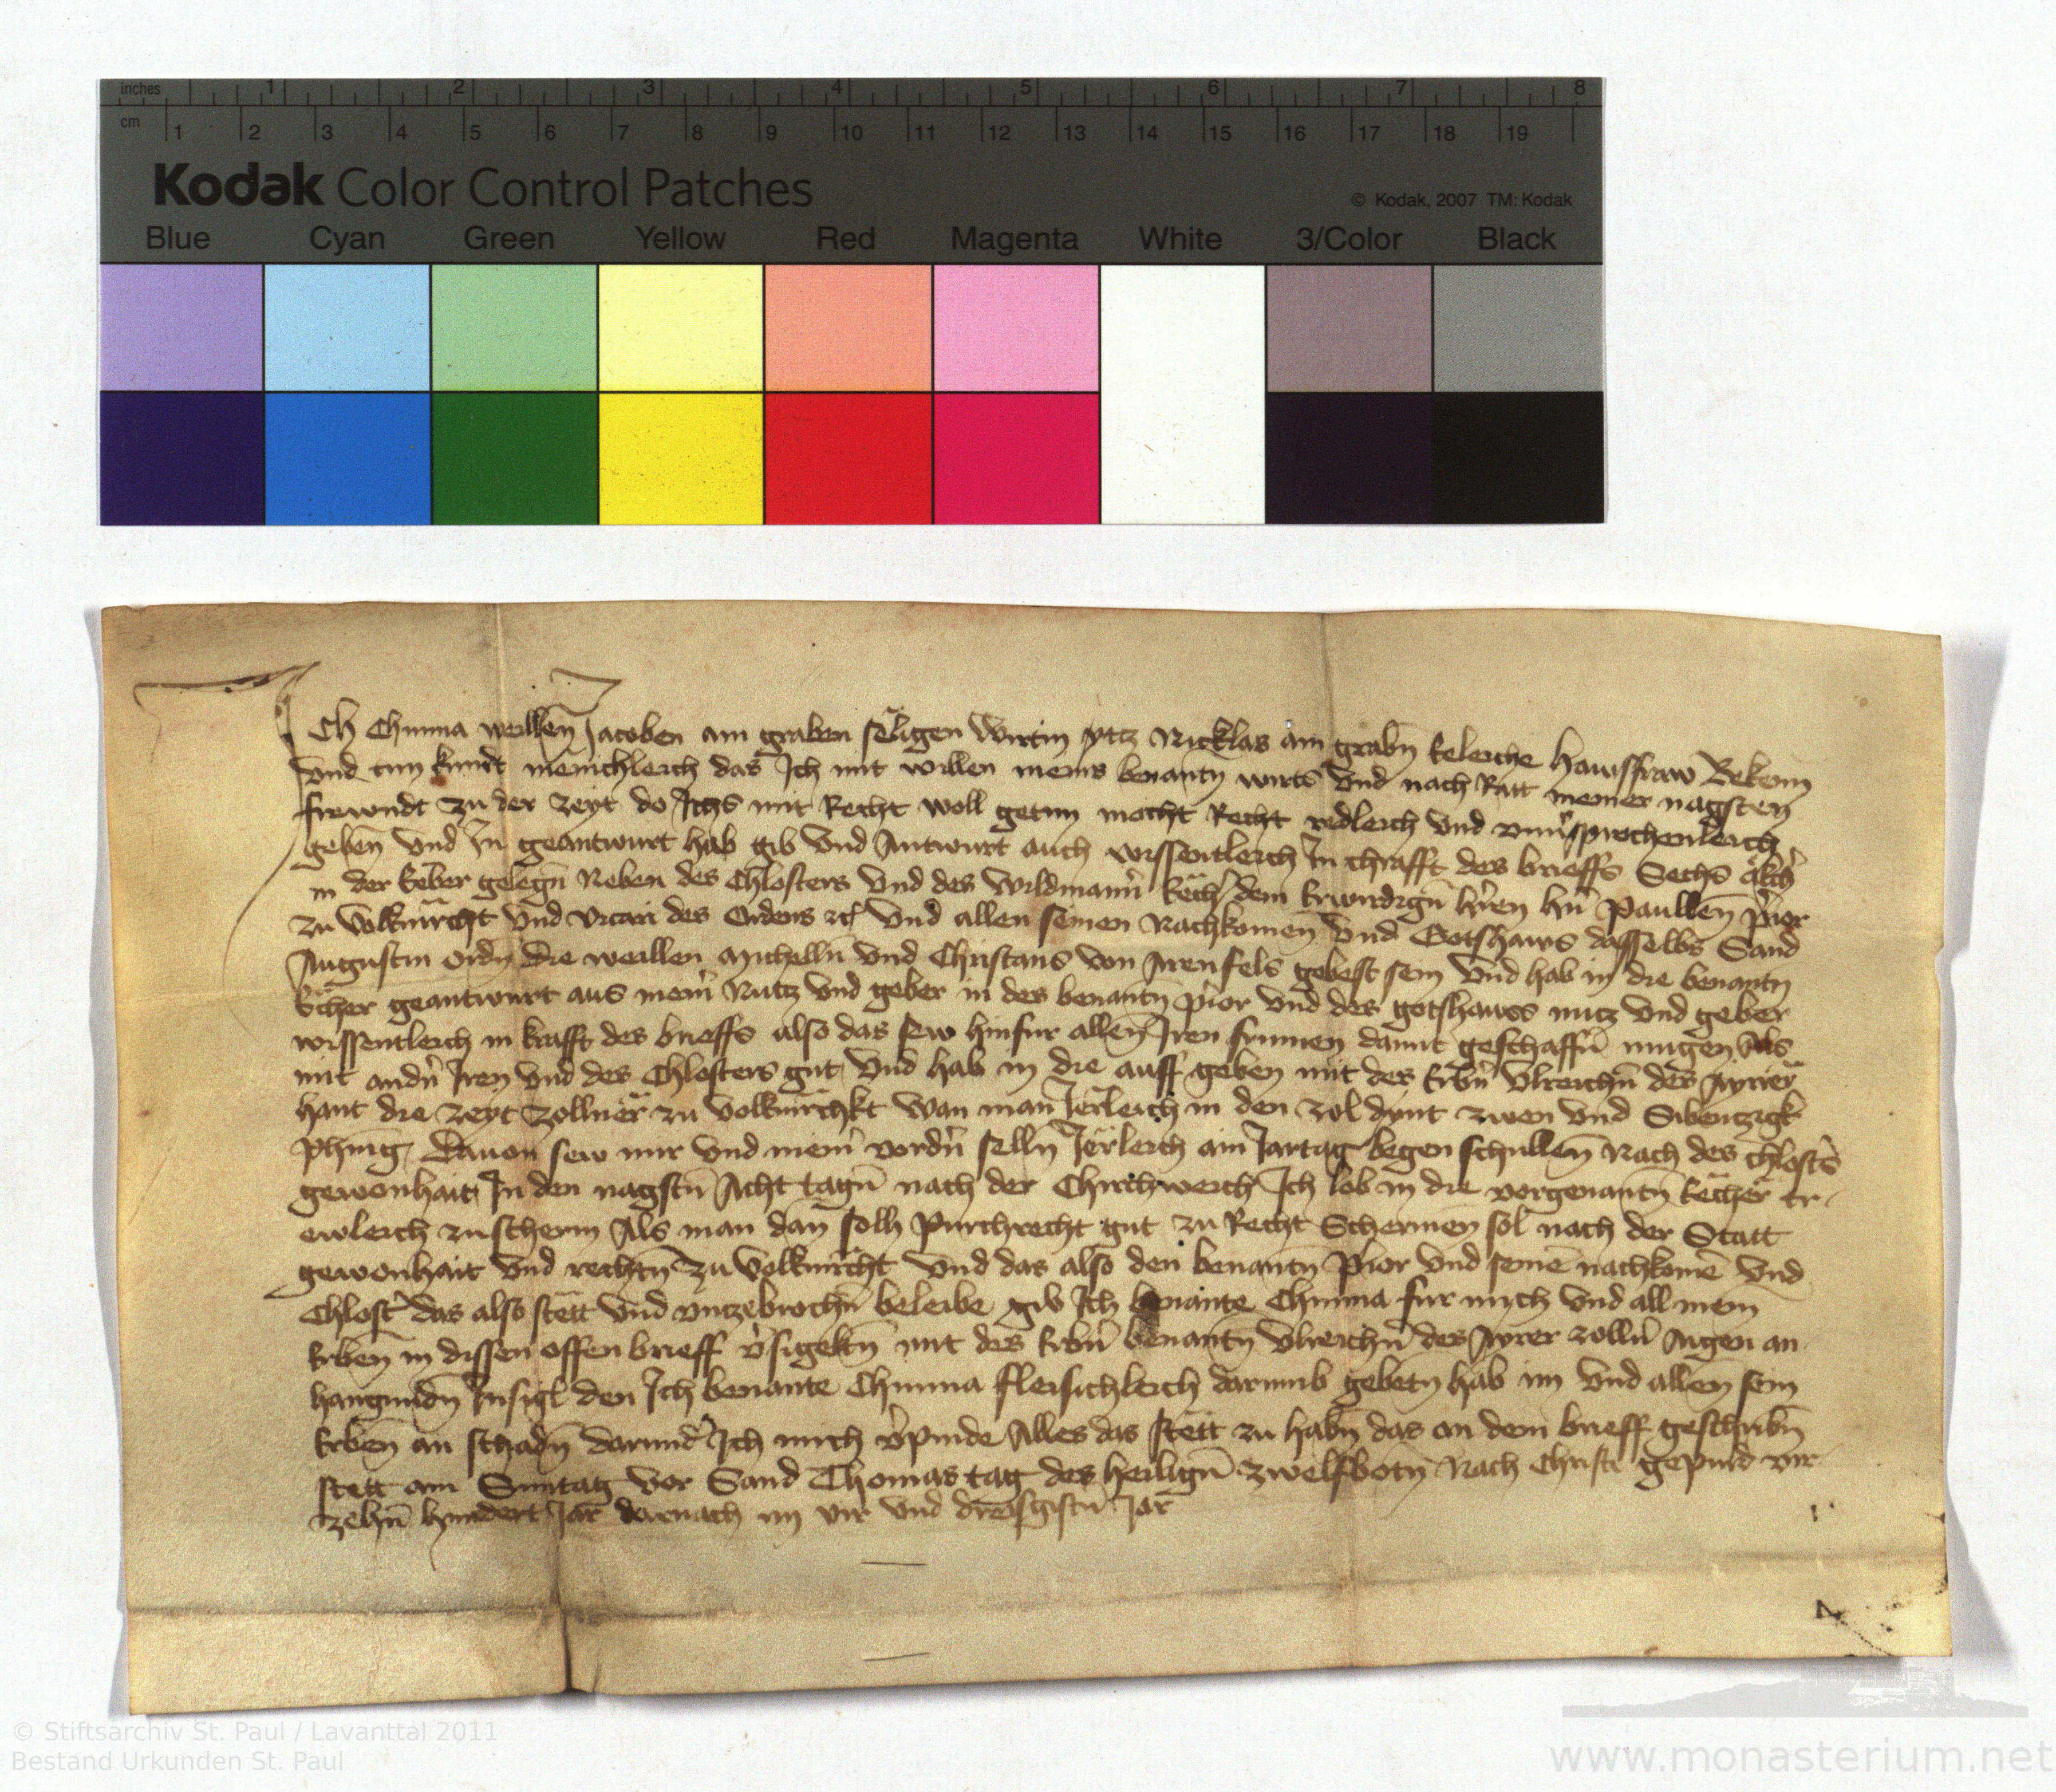 inches 1 2 3 4 5 6 7 8
cm 1 2 3 4 5 6 7 8 9 10 11 12 13 14 15 16 17 18 19
Kodak Color Control Patches
© Kodak, 2007 TM: Kodak
Blue Cyan Green Yellow Red Magenta White 3/Color Black
Ich Chunna weillen Jacoben am graben seligen wirtin yttz Nicklas am grabn eeleiche hawsfraw Bekenn
vnd tun kundt menichleich das Ich mit willen meins benantn wirts vnd nach Ratt meiner nagsten
frewndt zu der zeyt do Ichs mit Recht woll getun macht Recht redleich vnd
geben vnd In geantwurt hab gib vnd Antwurt auch wissentleich In chrafft des brieffs Sechs
in der gelegn Neben des Chlosters vnd des Wildmann dem Erwirdign hren hn Paullen prior
zu volkmrcht vnd vicari des Ordens vnd allen seinen Nachkomen vnd Gotshaws dasselbs Sand
Augustin ordn die weillen Michelln vnd Christans von Arenfels gebest sein vnd hab in die benantn
geantwurt aus meim Nutz vnd geber in des benantn prior vnd des gotshawss nutz vnd geber
wissentleich in krafft des brieffs also das sew hinfur allen Iren frumen damit geschaffn mugen Als
mit andn Iren vnd des Chlosters gut vnd hab in die auff geben mit des Erbn vlreichn des Ayrer
hant die zeyt zollner zu volkmrchkt wan man Jerleich in den zol dynt zwen vnd Sibentzigk
phnig Dauon sew mir vnd mein vordn selln Jerleich ain Jartag begen schullen Nach des chlosters
gewonhait In den nagstn Acht tagn nach der Chirchweich Ich lob in die vorgenantn echer tr-
ewleich zu scherm Als man dan solh purchrecht gut zu Recht Schermen sol nach der Statt
gewonhait vnd rechtn zu volkmrcht vnd das also den benantn prior vnd seine nachkome vnd
Chlost das also stett vnd vntzebrochn beleibe gib Ich benante Chunna fur mych vnd all mein
Erben in dissen offen brieff vsigeltn mit des Erbn benantn vlreichn des Ayrer zolln Aigen an
hangundn Insigl den Ich benante Chunna fleisichleich darumb gebetn hab im vnd allen sein
Erben an schadn darund Ich mich vpinde Alles das stett zu habn das an dem brieff geschribn
stett am Suntag vor Sand Thomas tag des heilign zwelfbotn Nach Christi gepurd vir-
zehn hundert Jar darnach im vir vnd dreisgistn Jar
© Stiftsarchiv St. Paul / Lavanttal 2011
Bestand Urkunden St. Paul
www.monasterium.net